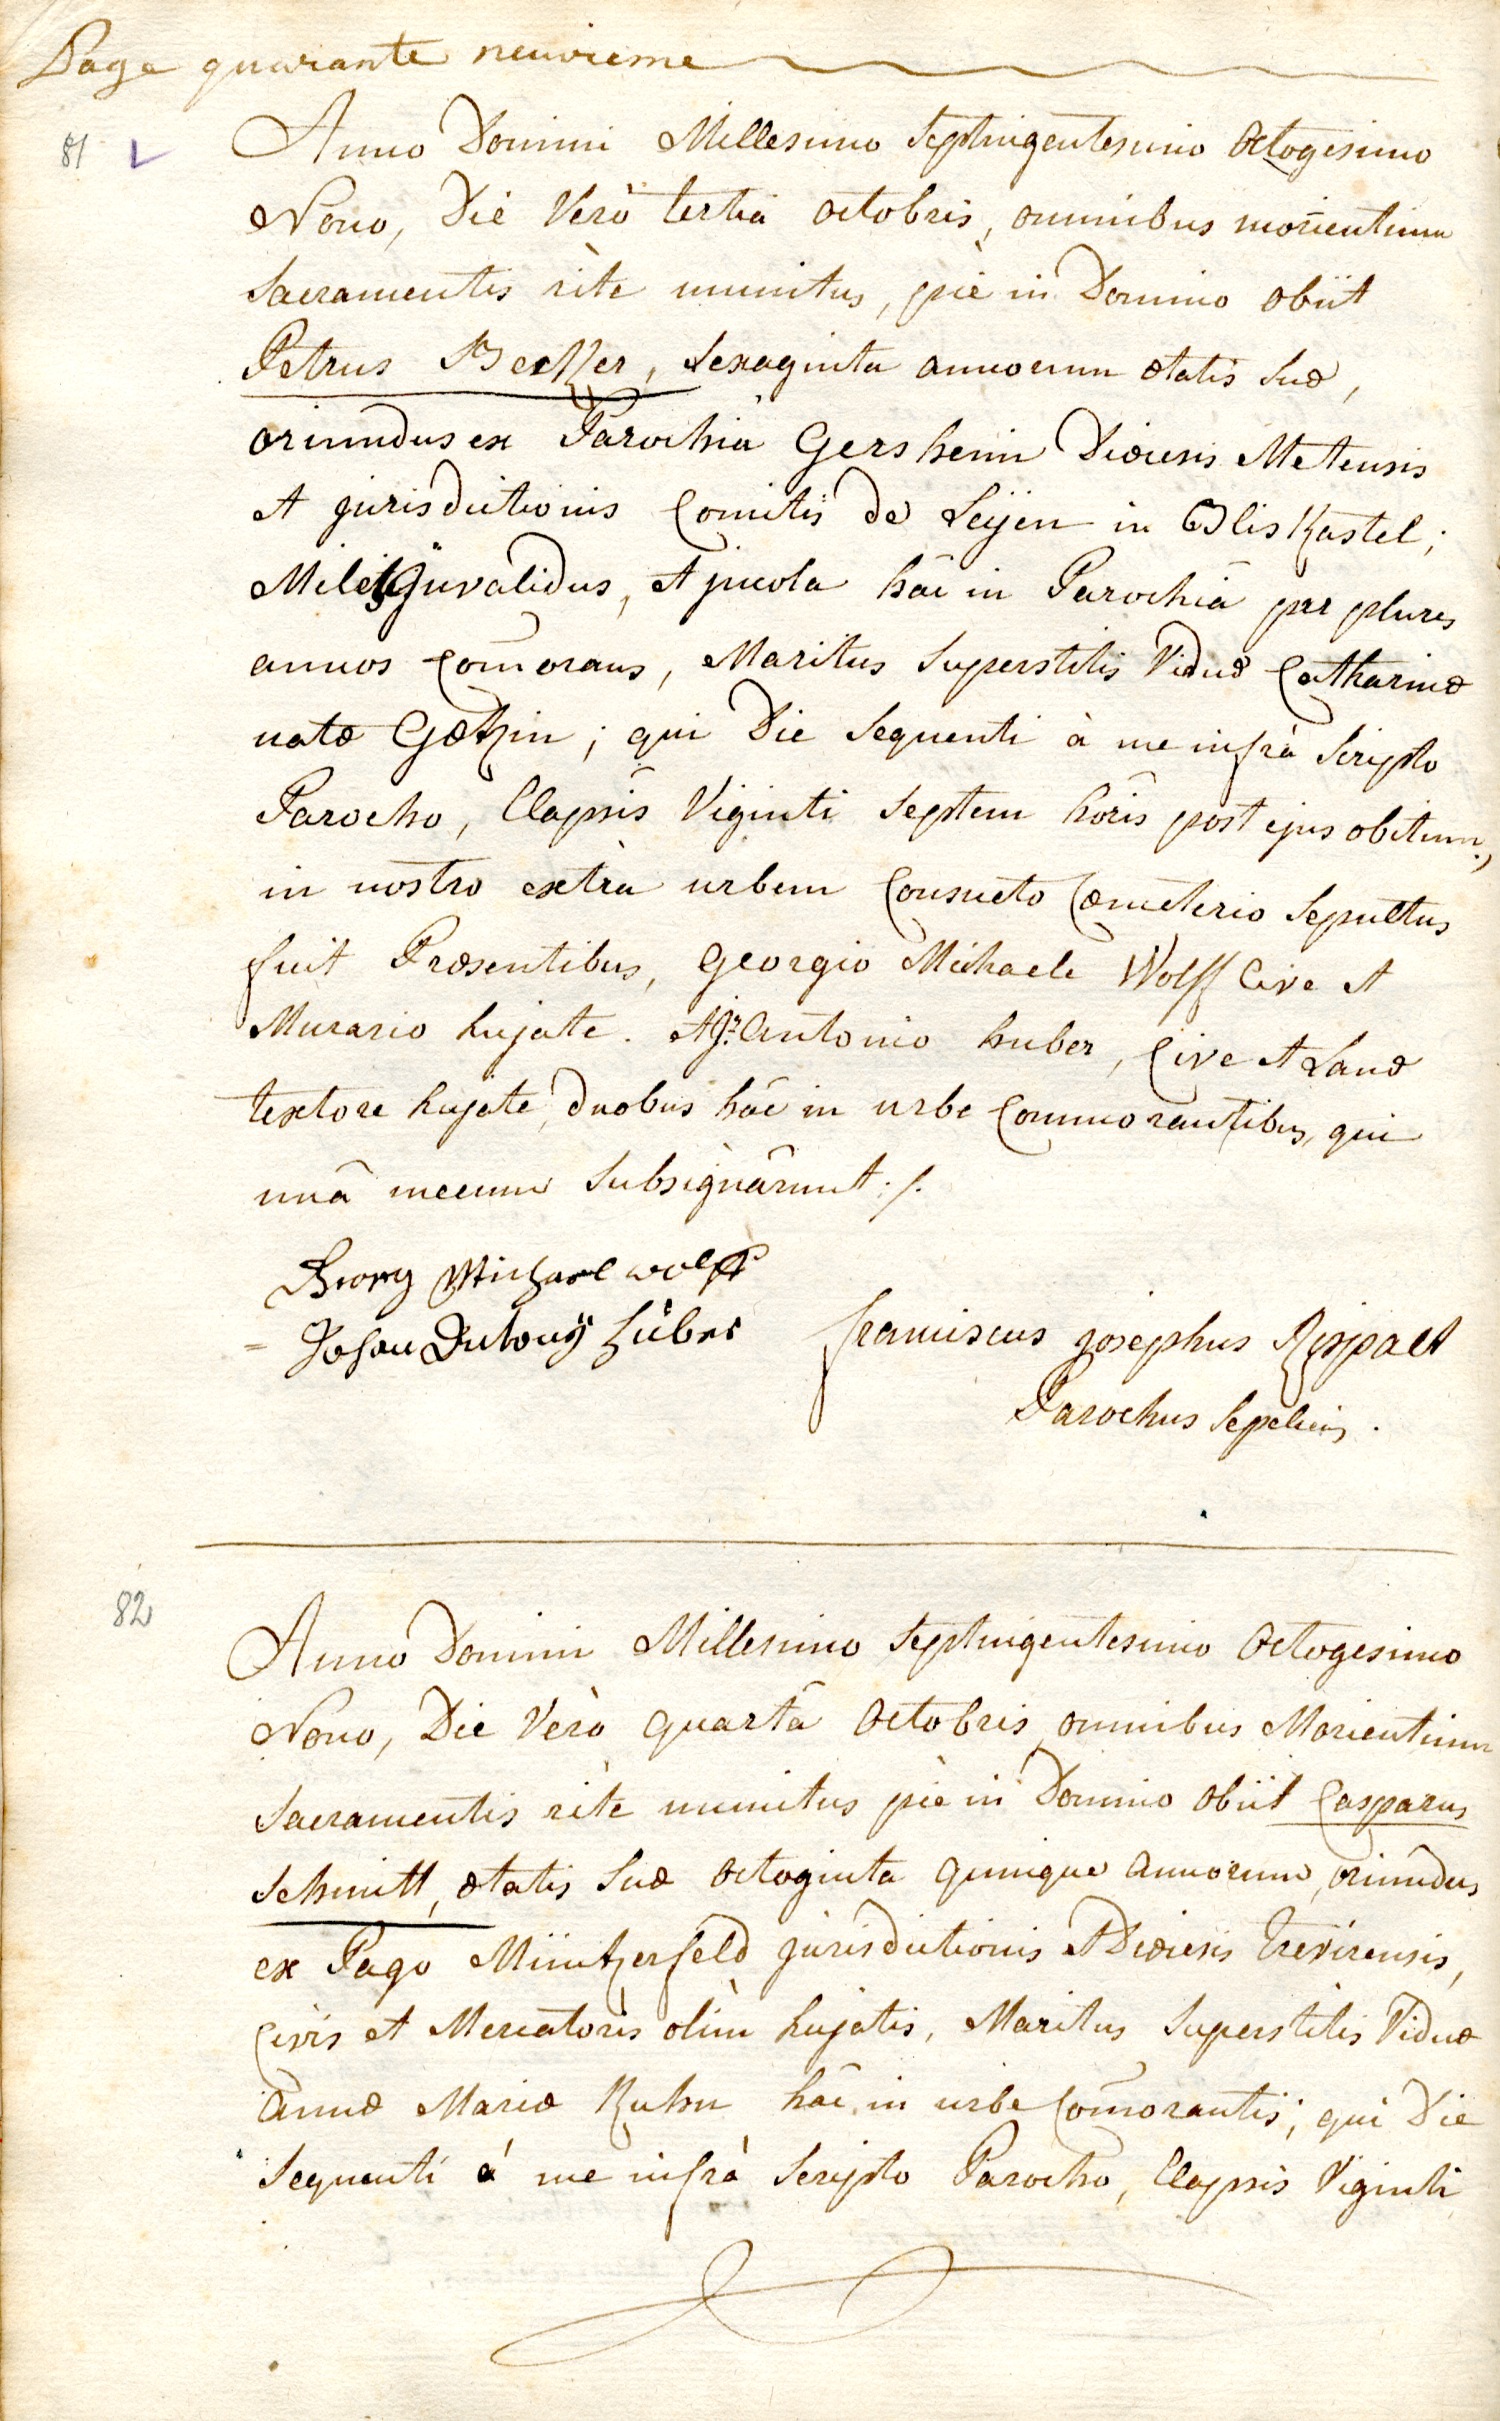 Page quarante neuvieme
81
Anno Domini Millesimo Septingentesimo Octogesimo
Nono, Die Verò tertiâ octobris, omnibus morientium
Sacramentis ritè munitus, piè in Domino obiit
Petrus Becker, Sexaginta annorum ætatis suæ,
oriundus ex Parochiâ Gersheim Diœcesis Metensis
et jurisdictionis Comitis de Leÿen in Bliskastel;
Miles Invalidus, et incola hâc in Parochiâ per plures
annos com̄orans, Maritus Superstitis Viduæ Catharinæ
natæ Gœtzin; qui Die Sequenti à me infrà Scripto
Parocho, Elapsis Viginti Septem horis post ejus obitum,
in nostro extrà urbem Consueto Cœmeterio Sepultus
fuit Præsentibus, Georgio Michaele Wolff Cive et
Murario hujate. et Jz. Antonio huber, Cive et Lanæ
textore hujate, duobus hâc in urbe Commorantibus, qui
unâ mecum Subsignârunt ./.
Georg Michael wolff
= Johan Antonÿ Huber
franciscus josephus Rispalt
Parochus Sepeliens.
82
Anno Domini Millesimo Septingentesimo Octogesimo
Nono, Die Verò quartâ Octobris, omnibus Morientium
Sacramentis ritè munitus piè in Domino obiit Casparus
Schmitt, ætatis suæ octoginta quinque annorum, oriundus
ex Pago Müntzerfeld jurisdictionis et Diœcesis Trevirensis,
Civis et Mercatoris olim hujatis, Maritus Superstitis Viduæ
annæ Mariæ Kuhn hâc in urbe Com̄orantis; qui Die
Sequenti á me infrà Scripto Parocho, Elapsis Viginti